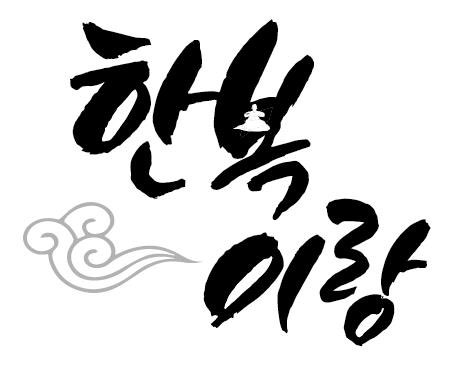 한복
이랑